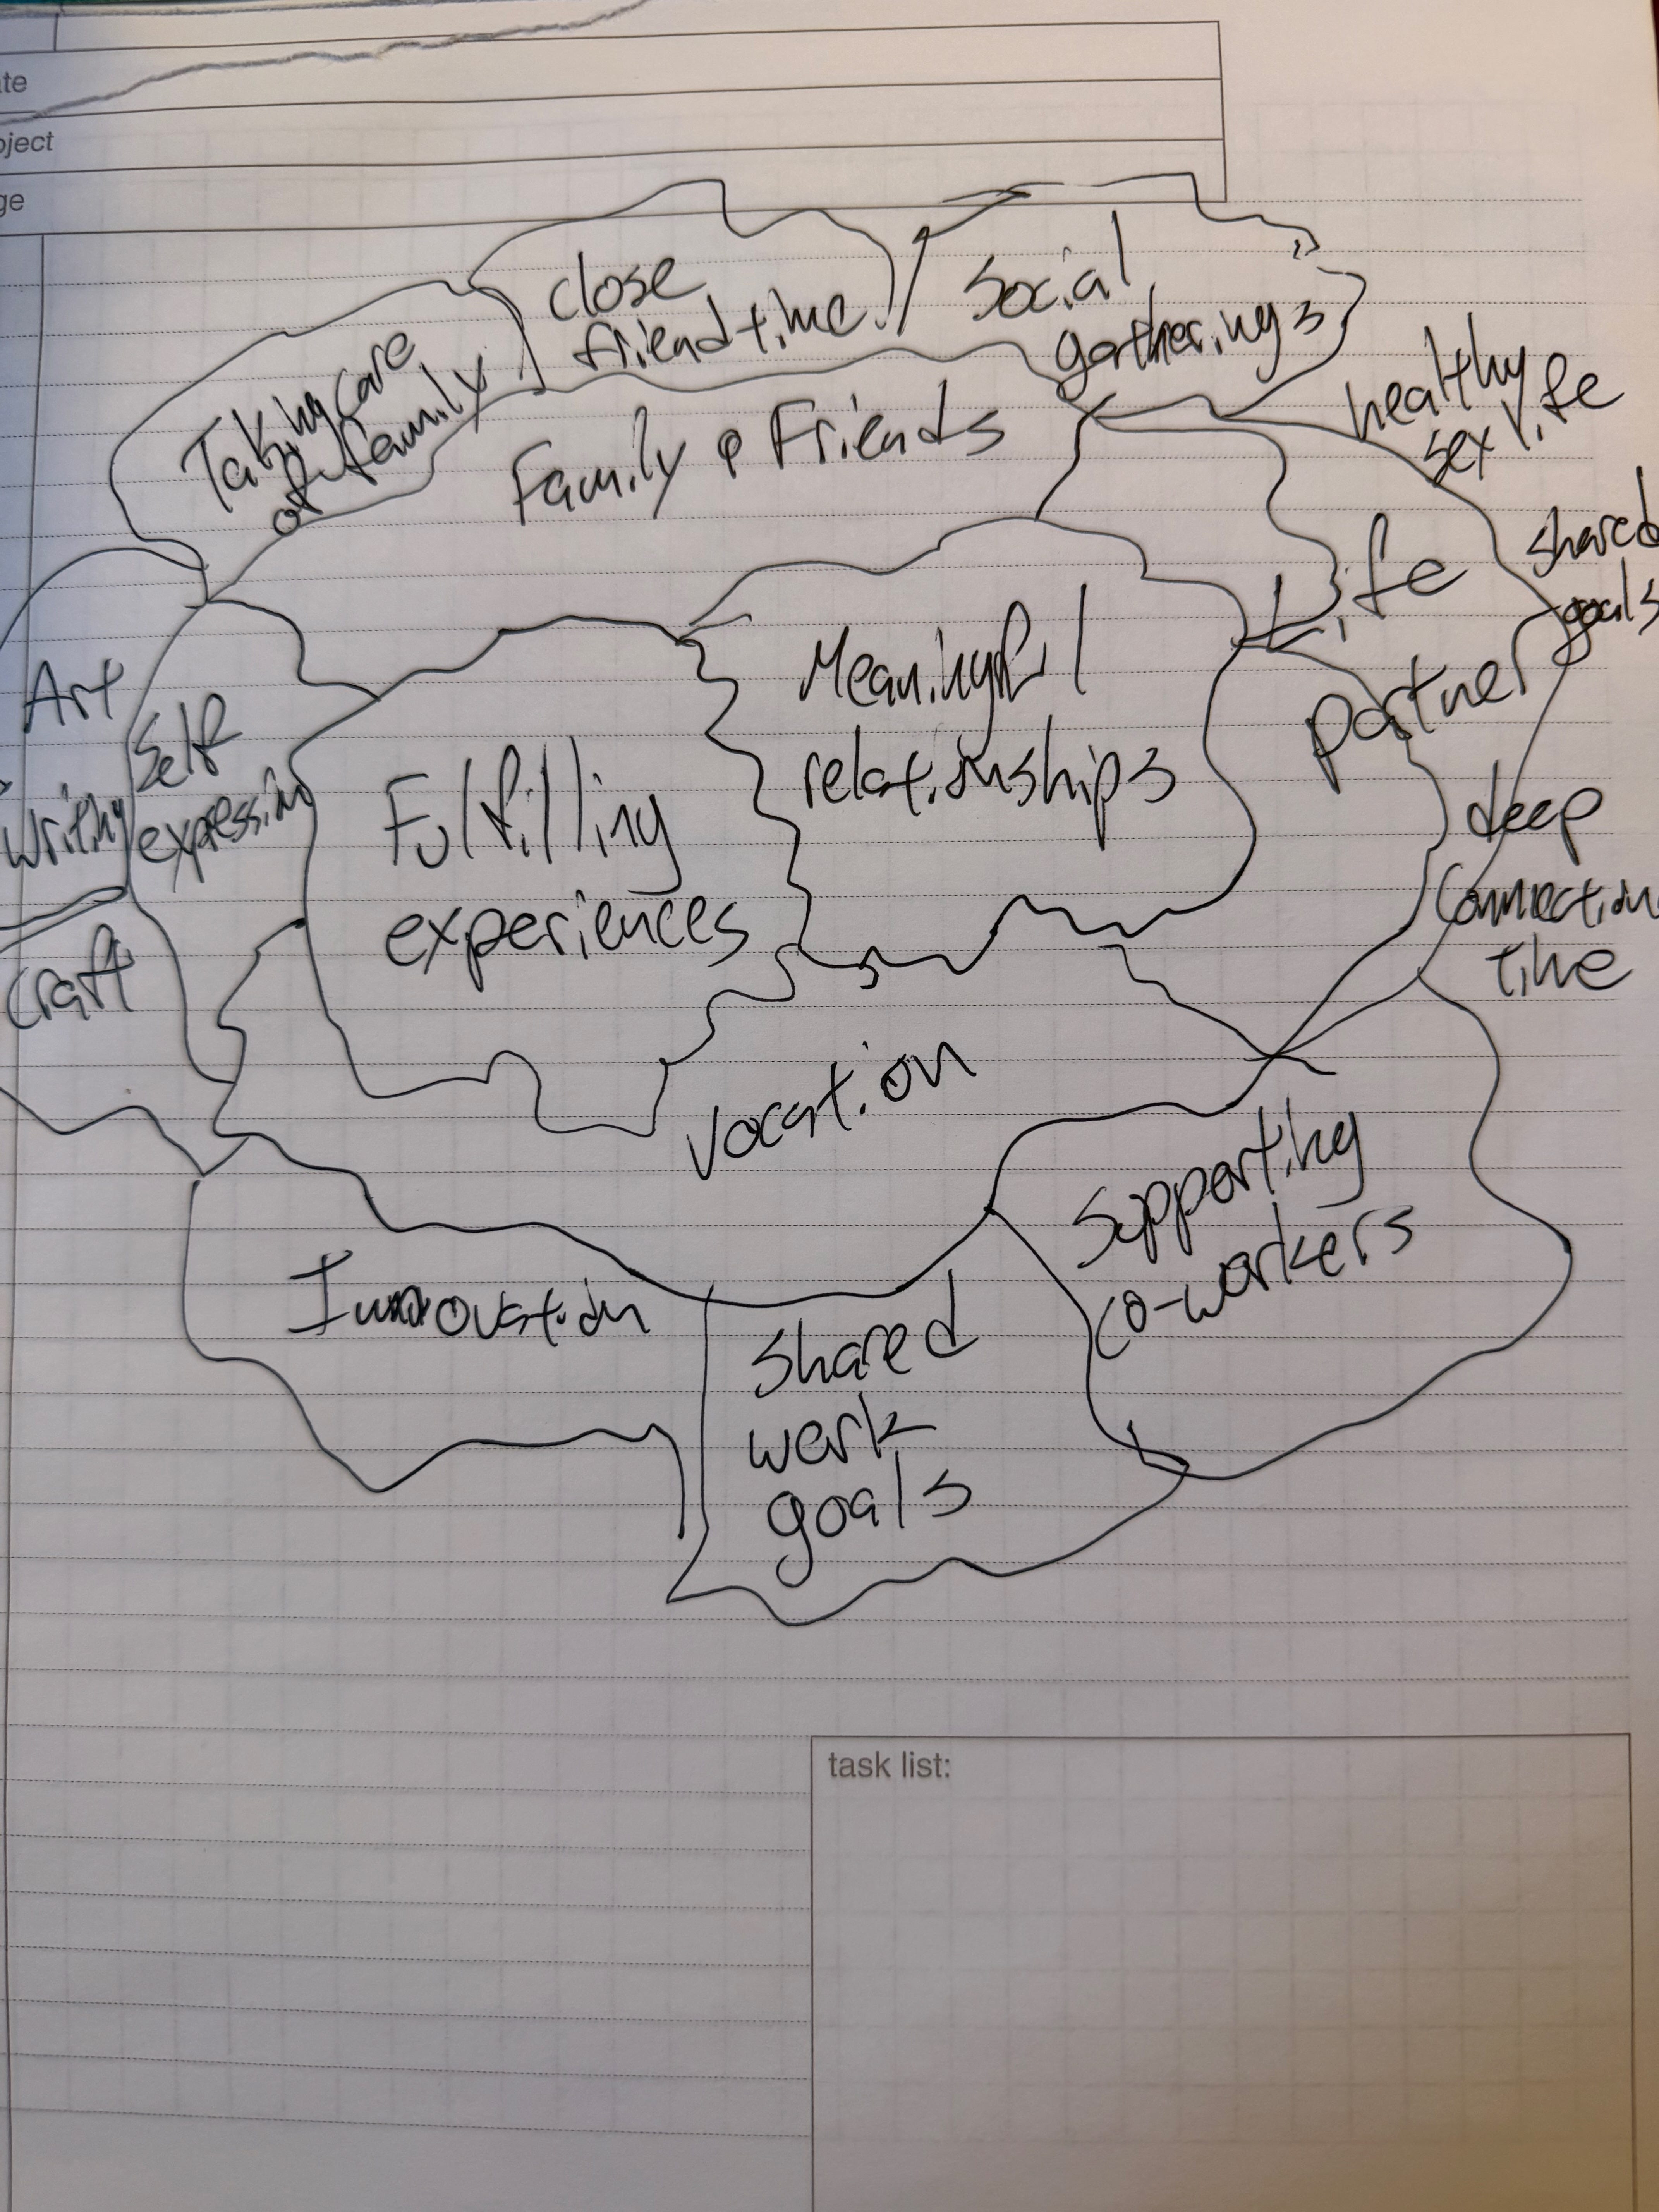 ate
oject
ge
close
friend time
Social
gatherings
Taking care
of family
Family & Friends
healthy
sex life
shared
goals
Life
partner
Meaningful
relationships
Art
Writing
Craft
Self
expression
Fulfilling
experiences
deep
connection
time
Vocation
Supporting
co-workers
Innovation
Shared
work
goals
task list: